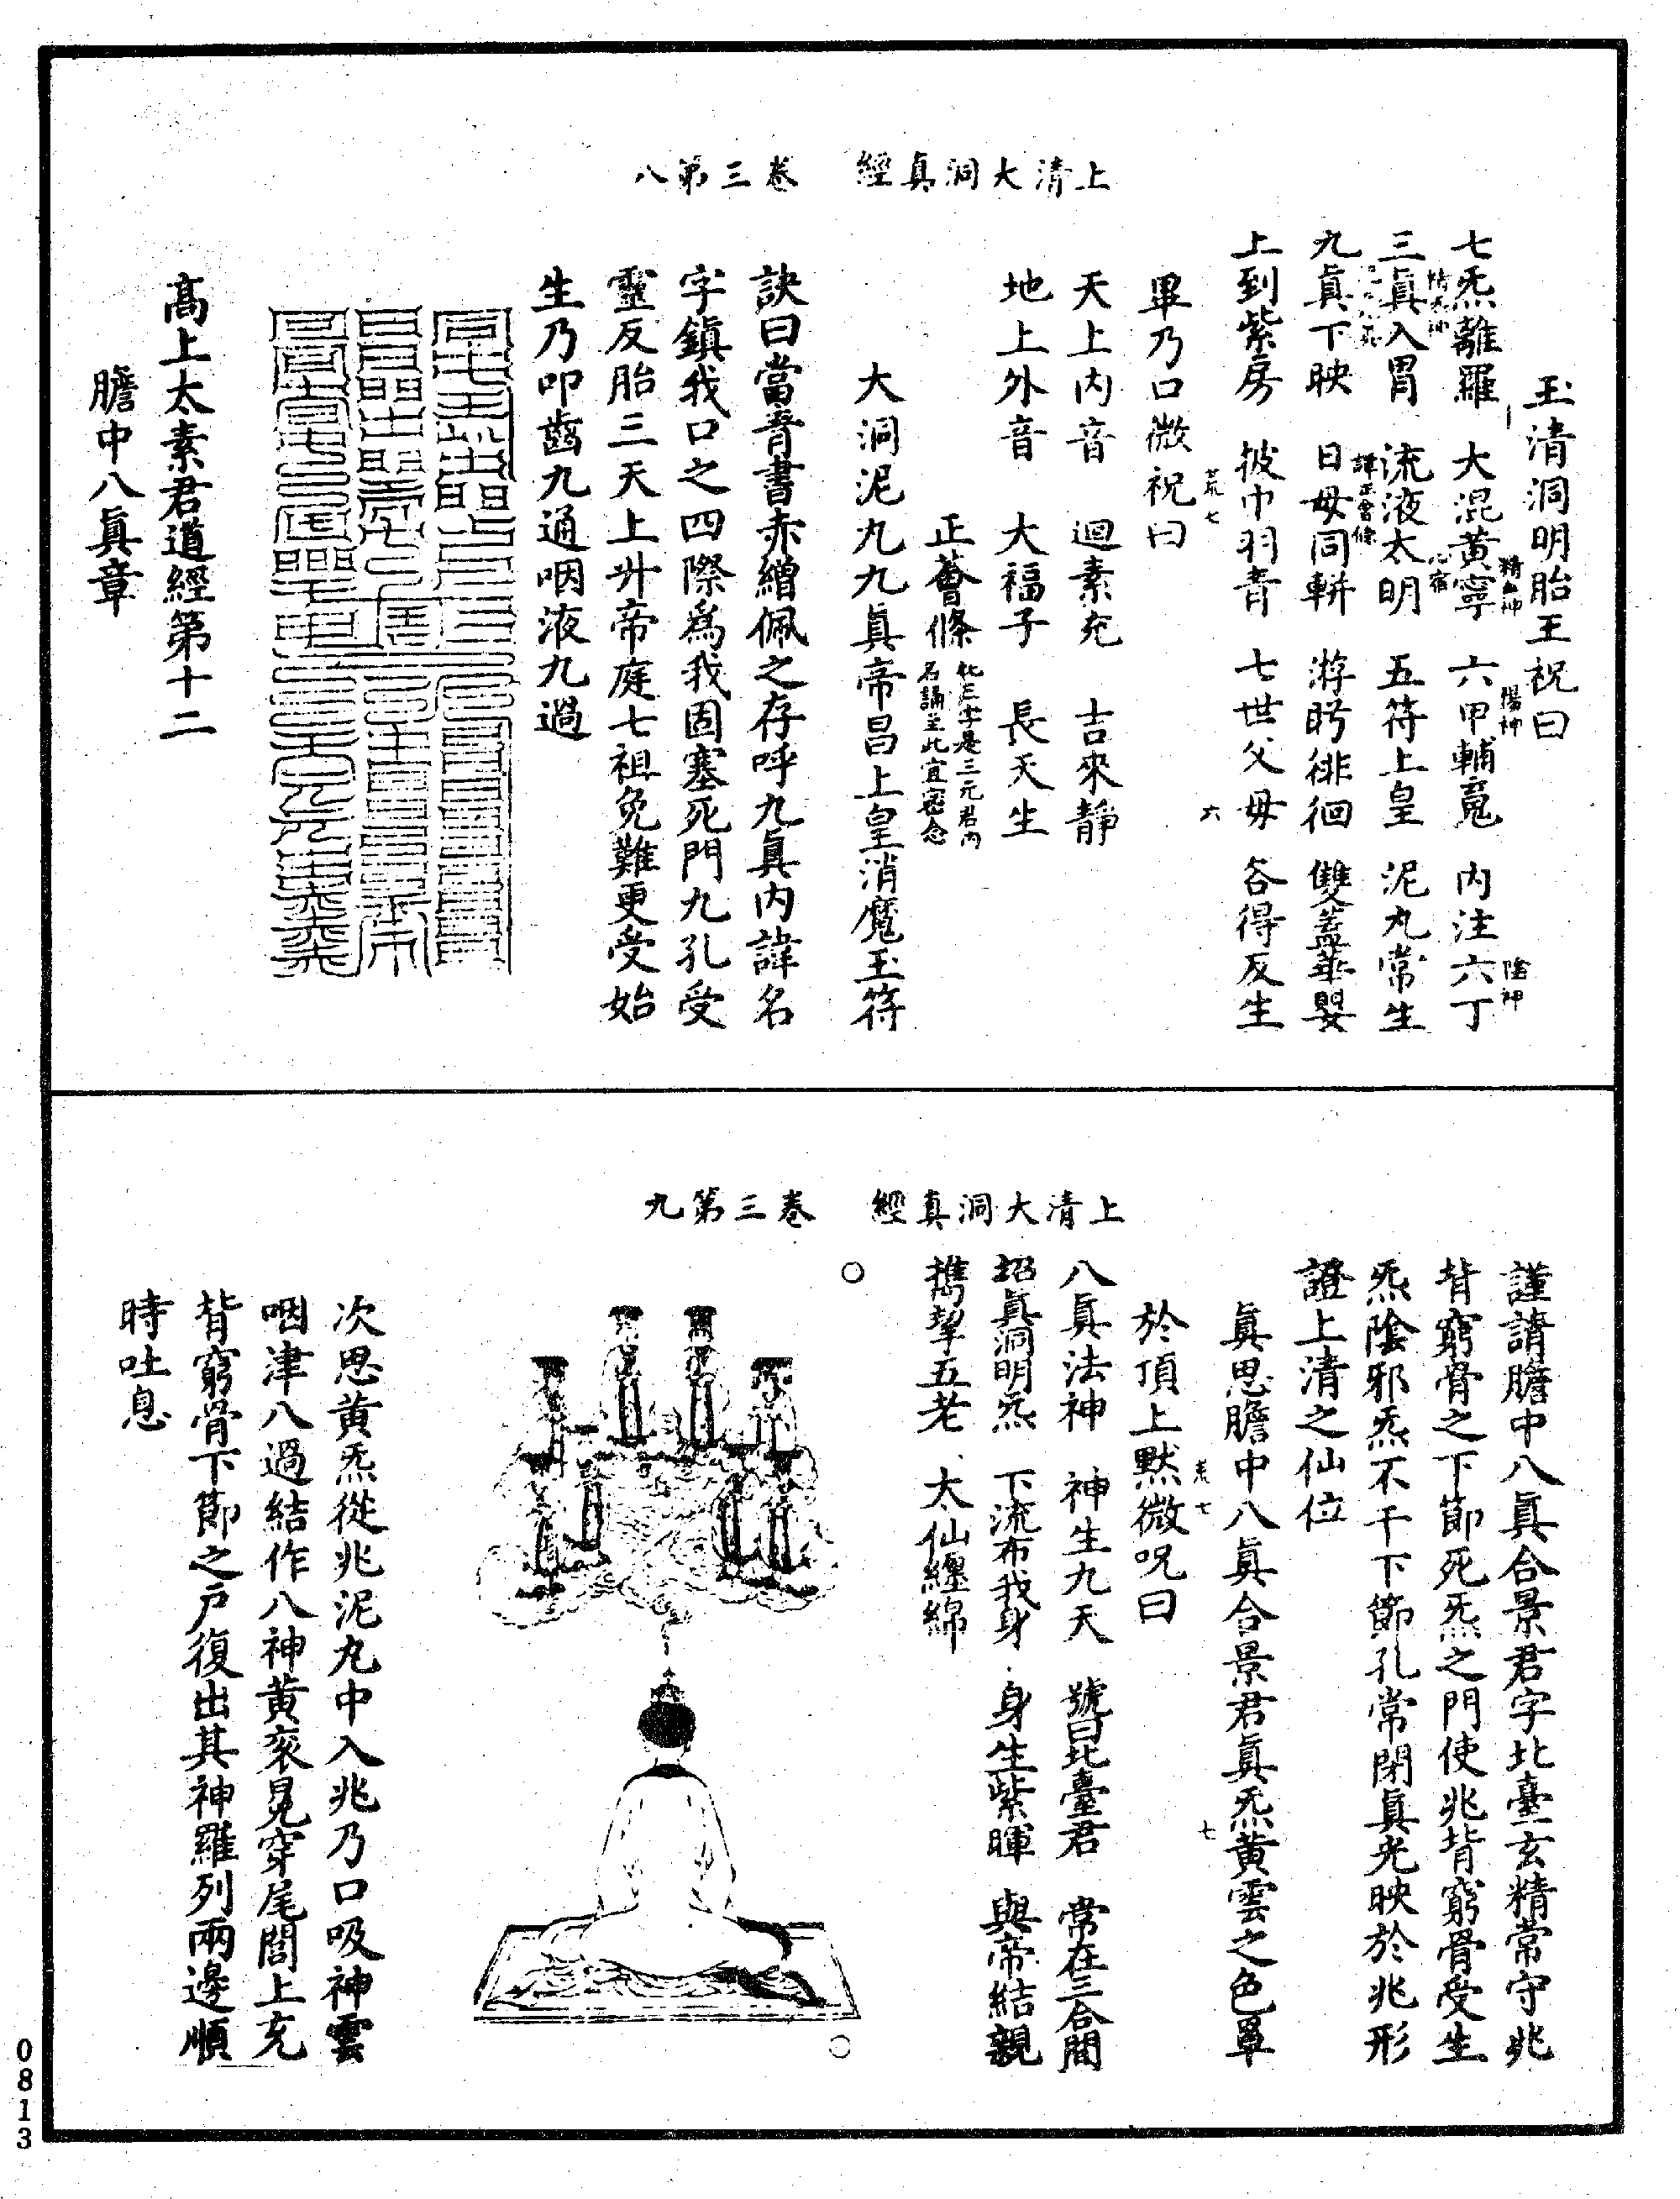 上清大洞真經　卷三第八
玉清洞明胎王祝曰
七炁離羅　大混黃寧　六甲輔魂　內注六丁
精血神　陽神　陰神
三真入胃　流液太明　五符上皇　泥丸常生
九真下映　日母同軿　游眄徘徊　雙蓋華嬰
諱正薈條
上到紫房　披巾羽青　七世父母　各得反生
荒七　六
畢乃口微祝曰
天上內音　迴素充　吉來靜
地上外音　大福子　長天生
正薈條此三字是三元君內名誦至此宜密念
大洞泥九九真帝昌上皇消魔玉符
訣曰當青書赤繒佩之存呼九真內諱名
字鎮我口之四際為我固塞死門九孔受
靈反胎三天上升帝庭七祖免難更受始
生乃叩齒九通咽液九過
高上太素君道經第十二
膽中八真章
上清大洞真經　卷三第九
謹請膽中八真合景君字北臺玄精常守兆
背窮骨之下節死炁之門使兆背窮骨受生
炁陰邪炁不干下節孔常閉真光映於兆形
證上清之仙位
真思膽中八真合景君真炁黃雲之色罩
荒七　七
於頂上默微呪曰
八真法神　神生九天　號曰北臺君　常在三合間
招真洞明炁　下流布我身　身生紫暉　與帝結親
攜挈五老　太仙纏綿
次思黃炁從兆泥丸中入兆乃口吸神雲
咽津八過結作八神黃衮冕穿尾閭上充
背窮骨下節之戶復出其神羅列兩邊順
時吐息
0813